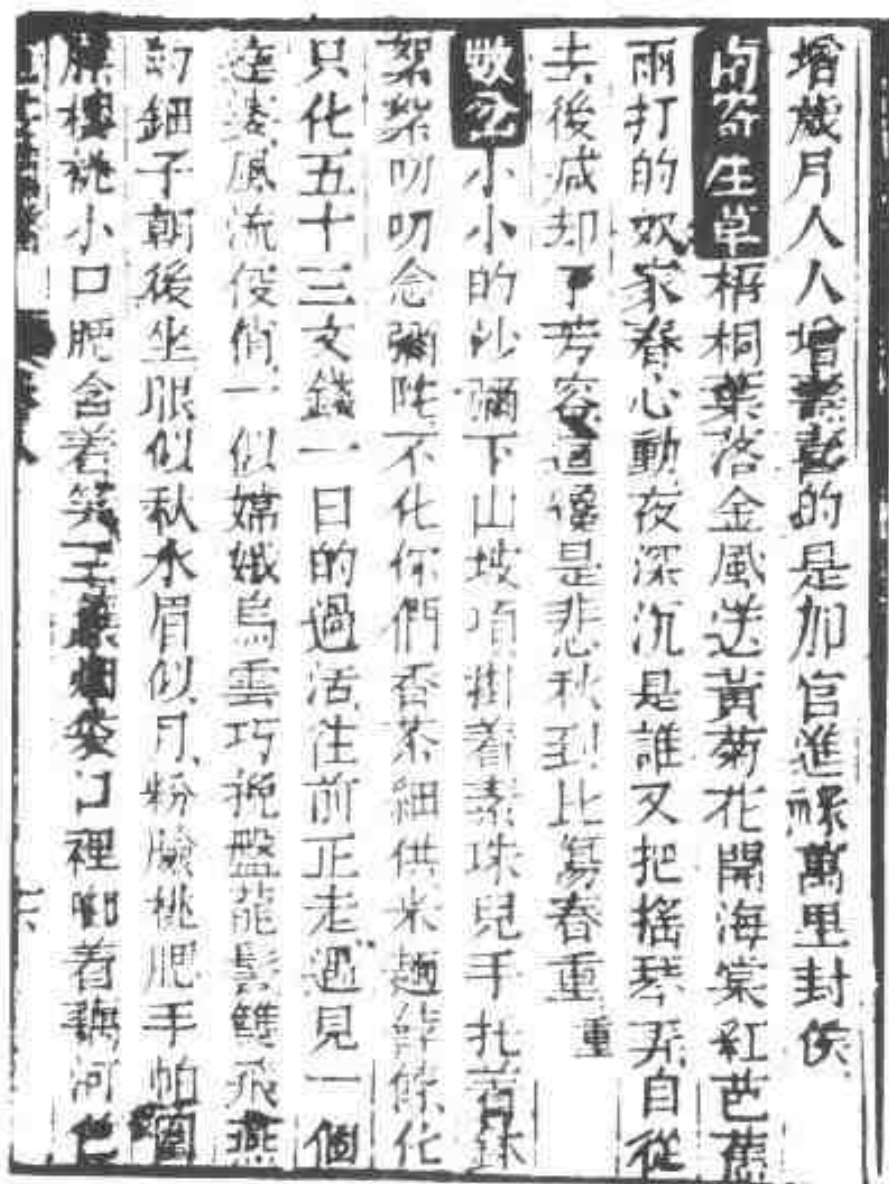 增歲月人人增壽喜的是加官進祿萬里封侯
南寄生草梧桐葉落金風送黃菊花開海棠紅芭蕉
雨打的奴家春心動夜深沉是誰又把搖琴弄自從
去後减却了芳容道像是悲秋到比傷春重重
數岔小小的沙彌下山坡項掛着素珠兒手托着鉢
絮絮叨叨念彌陀不化你們香茶細供米麵飯化
只化五十三文錢一日的過活往前正走遇見一個
風流俊俏一似嫦娥烏雲巧挽盤龍鬏雙飛燕
鈿子朝後坐眼似秋水眉似月粉臉桃腮手帕
櫻桃小口腮含着笑烟袋口裡啣着藕河包